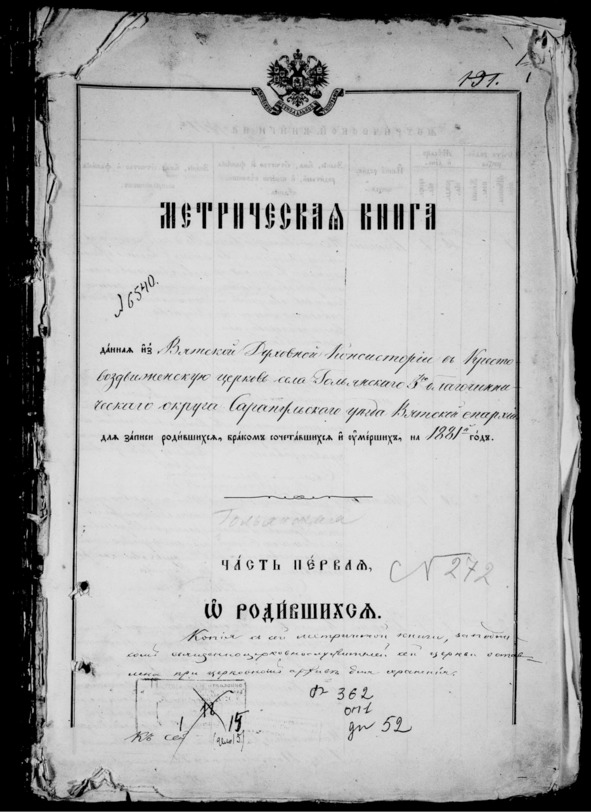 191.
МЕТРИЧЕСКАЯ КНИГА
№ 6540.
данная изъ Вятской Духовной Консисторіи въ Кресто-
воздвиженскую церковь села Гольянскаго 3го благочинни-
ческаго округа Сарапульскаго уѣзда Вятской епархіи
для записи родившихся, бракомъ сочетавшихся и умершихъ, на 1881й годъ.
Гольянская
ЧАСТЬ ПЕРВАЯ,
N 272
Ѡ РОДИВШИХСЯ.
Копія сей метрической книги, за подпи-
сью церкви остав-
лена при церковномъ архивѣ для храненія.
ф 362
оп 1
д 52
1
18
15
Къ св